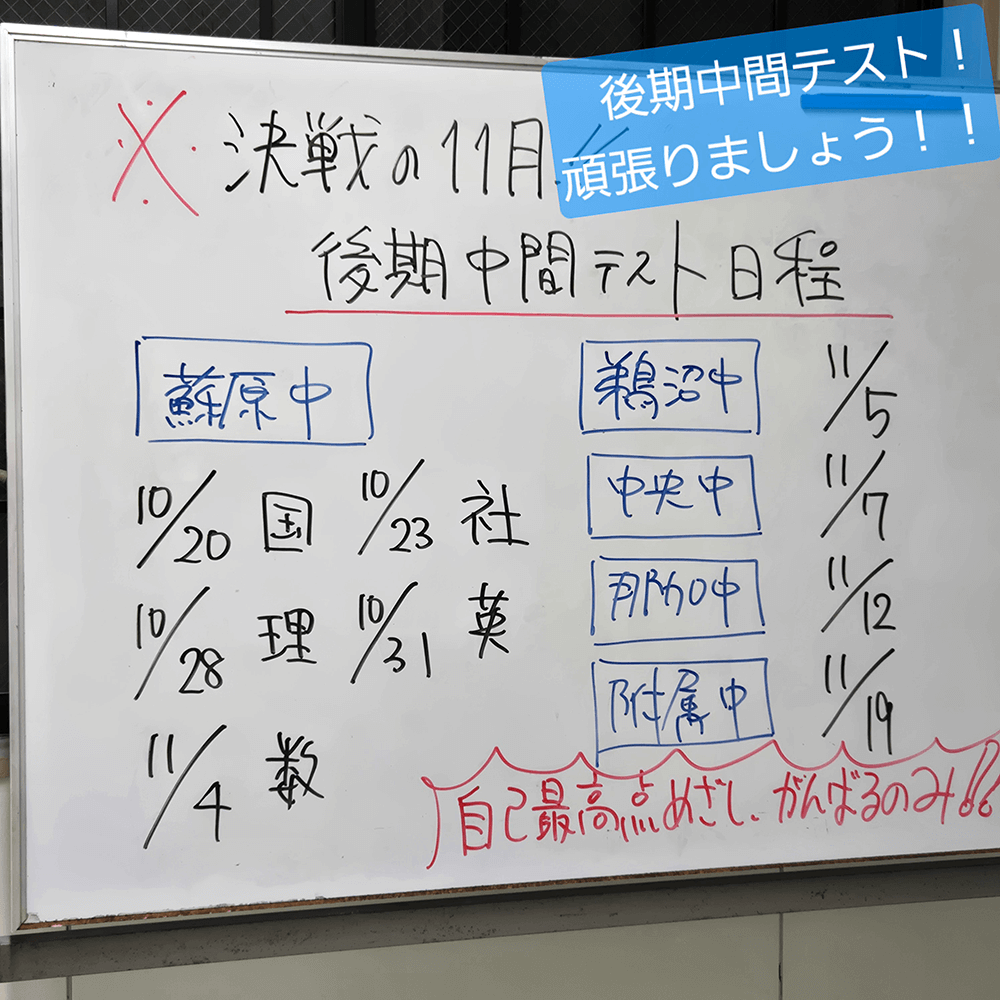 後期中間テスト！
頑張りましょう！！
※ 決戦の11月!!
後期中間テスト日程
蘇原中
10/20 国 10/23 社
10/28 理 10/31 英
11/4 数
鵜沼中 11/5
中央中 11/7
那加中 11/12
附属中 11/19
自己最高点めざし、がんばるのみ!!